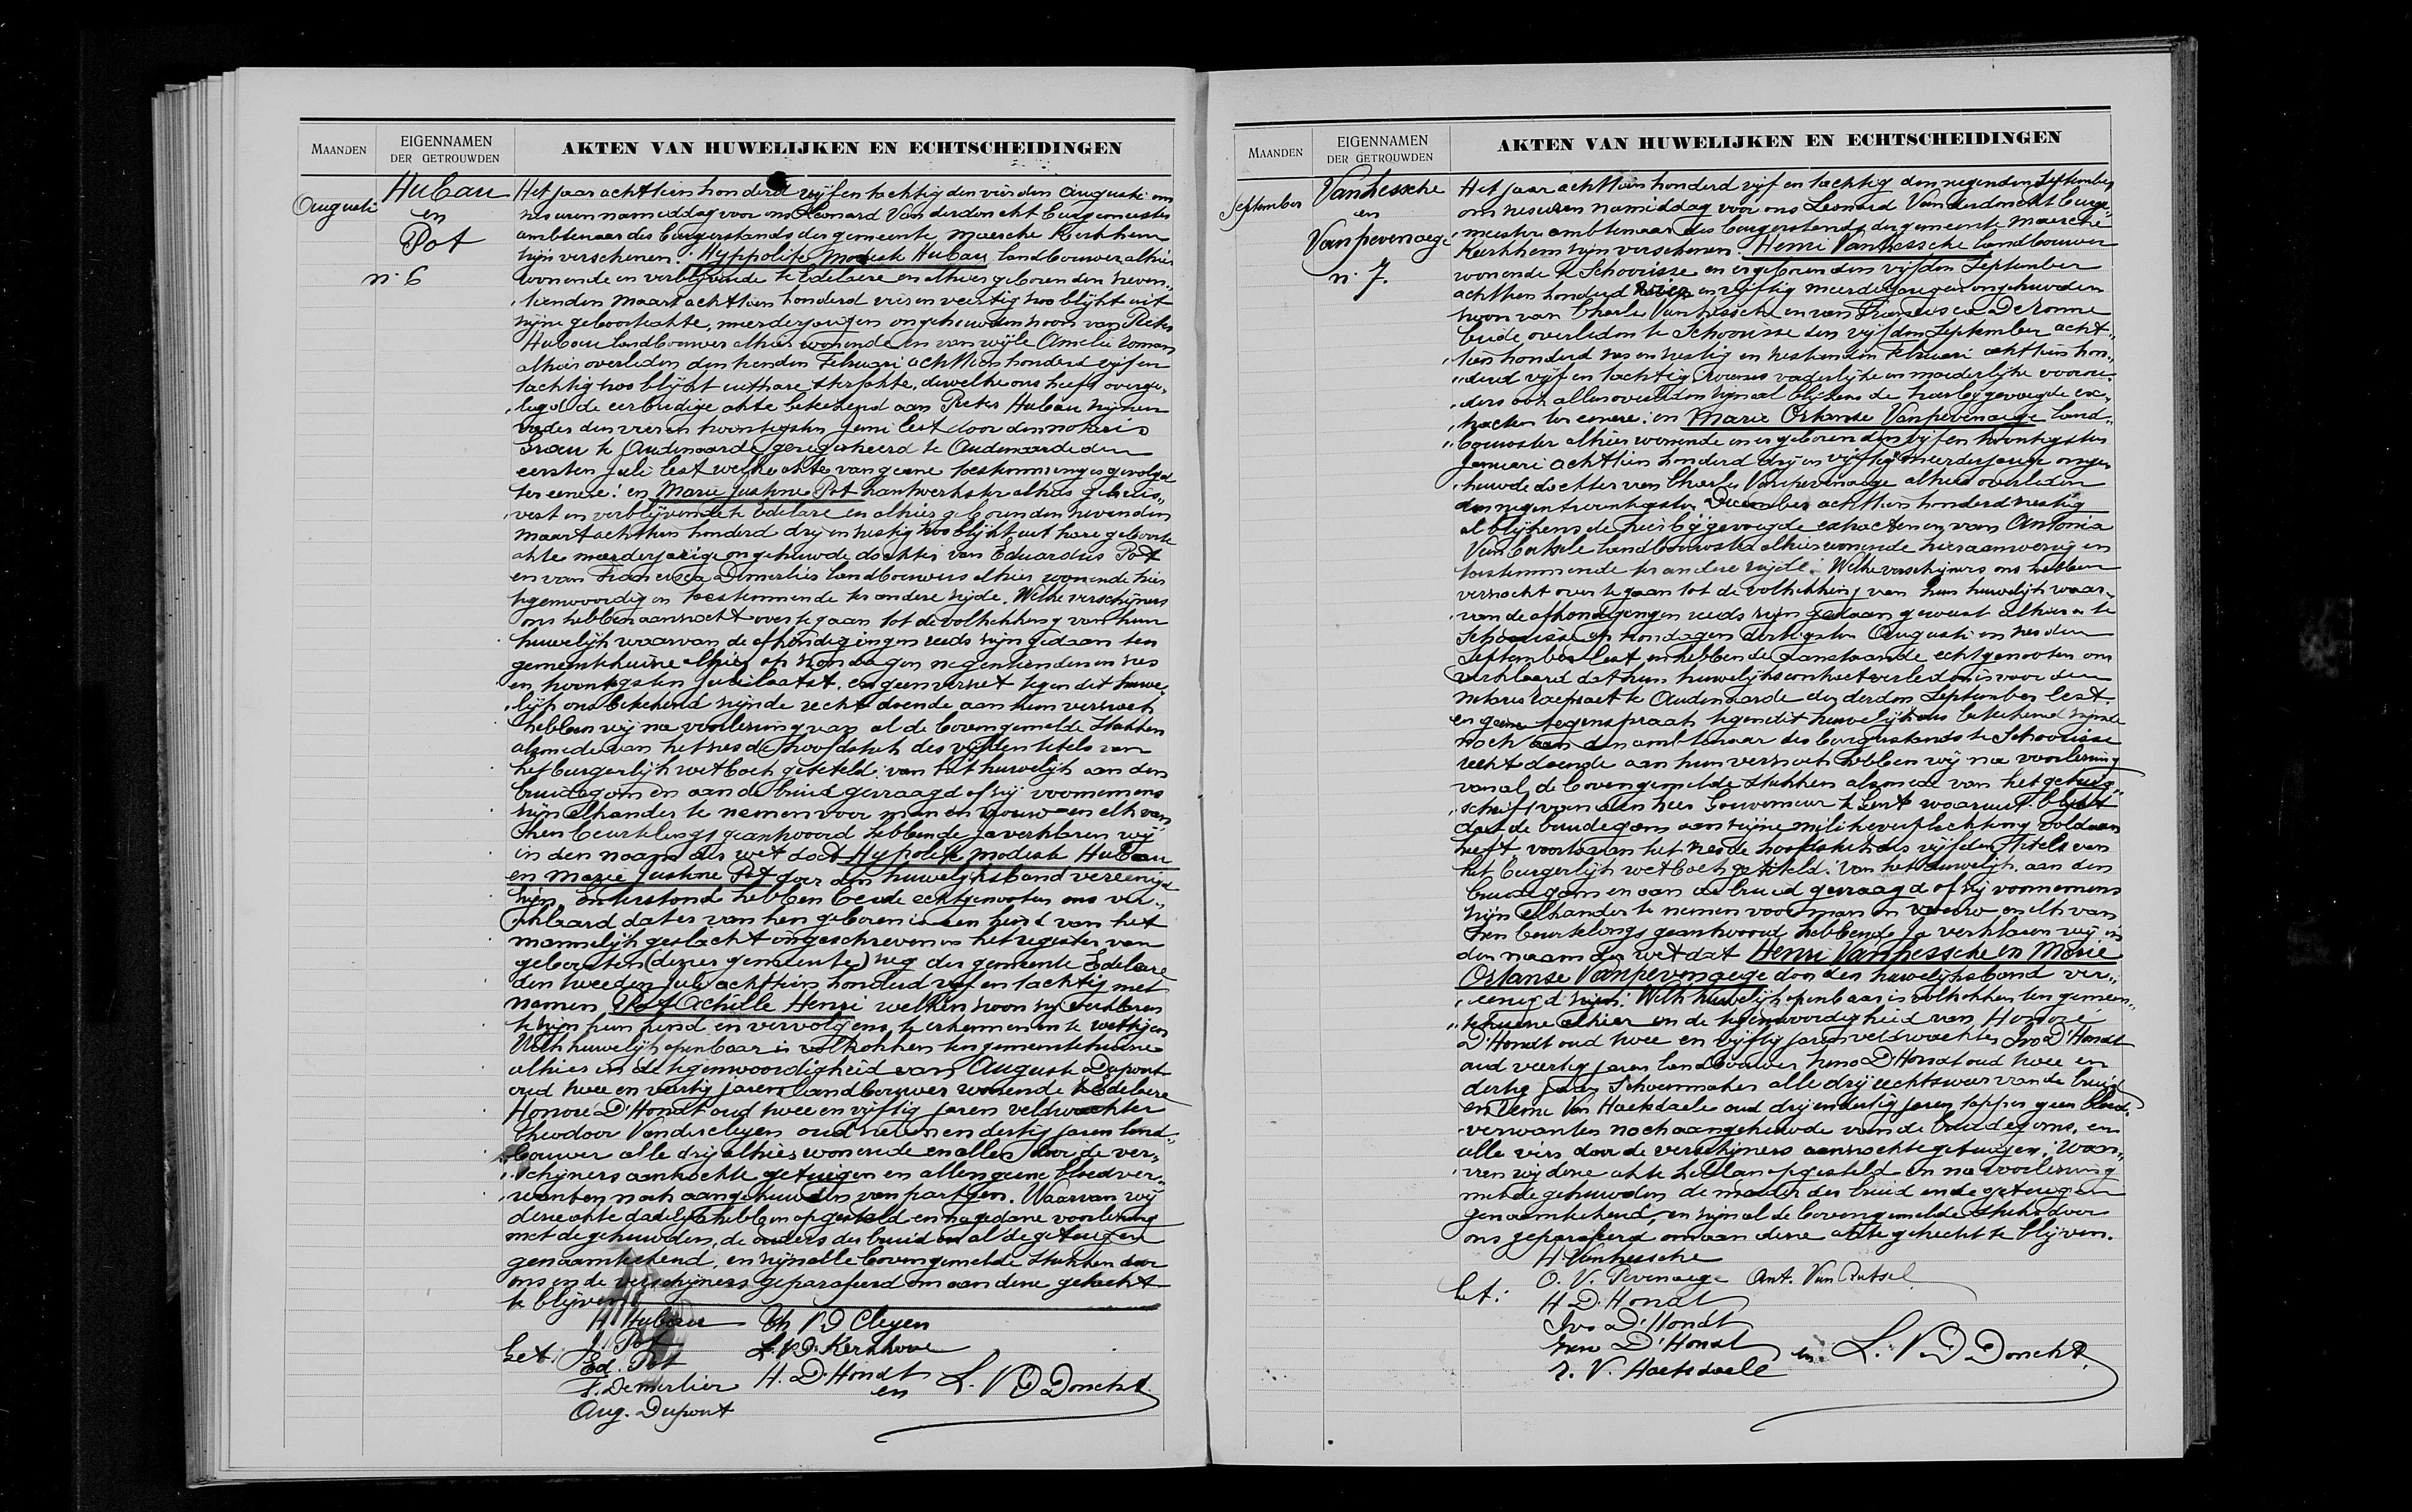 MAANDEN
EIGENNAMEN
DER GETROUWDEN
AKTEN VAN HUWELIJKEN EN ECHTSCHEIDINGEN
Augusti
Hubau
en
Pot
n: 6
Het jaar achttien honderd vijf en tachtig den vierden Augusti om
zes uren namiddag voor ons Leonard Van derdoncht burgemeester
ambtenaar des burgerstands der gemeente Maercke Kerkhem
zijn verschenen: Hyppolite Modeste Hubau landbouwer alhier
wonende en verblijvende te Edelaere en alhier geboren den zeven„
„tienden Maart achttien honderd vier en veertig zoo blijkt uit
zijne geboorteakte, meerderjarigen ongehuwden zoon van Pieter
Hubau landbouwer alhier wonende en van wijle Amelie Romans
alhier overleden den tienden Februari achttien honderd vijf en
tachtig zoo blijkt uit hare sterfakte, dewelke ons heeft overge„
„legd de eerbiedige akte beteekend aan Pieter Hubau zijnen
vader den vier en twintigsten Juni lest door den notaris
te Audenaarde geregistreerd te Audenaarde den
eersten Juli lest welke akte van geene toestemming is gevolgd
ter eenere: en Marie Justine Pot handwerkster alhier gehuis„
„vest en verblijvende te Edelare en alhier geboren den zevenden
Maart achttien honderd drij en zestig zoo blijkt uit hare geboorte
akte meerderjarige ongehuwde dochter van Eduardus Pot
en van Francisca Demerlier landbouwers alhier wonende hier
tegenwoordig en toestemmende ter andere zijde. Welke verschijners
ons hebben aanzocht over te gaan tot de voltrekking van hun
huwelijk waarvan de afkondigingen reeds zijn gedaan ten
gemeentehuize alhier op zondagen negentienden en zes
en twintigsten Juli laatst. en geen verzet tegen dit huwe„
„lijk ons beteekend zijnde recht doende aan hun verzoek
hebben wij na voorlezing van al de bovengemelde stukken
alsmede van het zesde hoofdstuk des vijfden titels van
het burgerlijk wetboek getiteld: van het huwelijk aan den
bruidegom en aan de bruid gevraagd of zij voornemens
zijn elkander te nemen voor man en vrouw en elk van
hen beurtelings geantwoord hebbende Ja verklaren wij
in den naam der wet dat Hypolite Modeste Hubau
en Marie Justine Pot door den huwelijksband vereenigd
zijn. Enterstond hebben beide echtgenooten ons ver„
„klaard dat er van hen geboren is een kind van het
mannelijk geslacht ingeschreven in het register van
geboorten (dezer gemeente) zeg der gemeente Edelaere
den tweeden Juli achttien honderd vijf en tachtig met
namen Pot Achille Henri welken zoon zij verklaren
te zijn hun kind en vervolgens te erkennen en te wettigen
Welk huwelijk openbaar is voltrokken ten gemeentehuize
alhier in de tegenwoordigheid van Auguste Dupont
oud twee en veertig jaren landbouwer wonende te Edelaere
Honoré D'Hondt oud twee en vijftig jaren veldwachter
Theodoor Vandercleyen oud zeven en dertig jaren land„
„bouwer alle drij alhier wonende en allen door de ver„
„schijners aanzochte getuigen en allen geene bloedver„
„wanten noch aangehuwden van partijen. Waarvan wij
deze akte dadelijk hebben opgesteld en na gedane voorlezing
met de gehuwden, de ouders der bruid en al de getuigen
genaamteekend, en zijn alle bovengemelde stukken door
ons en de verschijners geparafeerd om aan deze gehecht
te blijven
Get:
H. Hubau
J. Pot
Ed. Pot
F. Demerlier
Aug. Dupont
Th V D Cleyen
L. V. D. Kerkhove
H. D'Hondt
en L. V D Doncht.
MAANDEN
EIGENNAMEN
DER GETROUWDEN
AKTEN VAN HUWELIJKEN EN ECHTSCHEIDINGEN
September
Vanhessche
en
Vanpevenaege
n: 7.
Het jaar achttien honderd vijf en tachtig den negenden September
om zes uren namiddag voor ons Leonard Vanderdoncht burge„
„meester ambtenaar des burgerstands der gemeente Maercke
Kerkhem zijn verschenen: Henri Vanhessche landbouwer
wonende te Schoorisse en er geboren den vijfden September
achttien honderd en vijftig meerderjarigen ongehuwden
zoon van Charles Vanhessche en van Francisca DeRonne
beide overleden te Schoorisse den vijfden September acht„
„tien honderd zes en zestig en zestienden Februari achttien hon„
„derd vijf en tachtig wiens vaderlijke en moederlijke vooroud„
„ers ook allen overleden zijn al blijkens de hierbijgevoegde ex„
„tracten ter eenere: en Marie Ostanse Vanpevenaege land„
„bouwster alhier wonende en er geboren den vijf en twintigsten
Januari achttien honderd drij en vijftig meerderjarige onge„
„huwde dochter van Charles Vanpevenaege alhier overleden
den negentwintigsten December achttien honderd zestig
al blijkens de hierbijgevoegde extracten en van Antonia
Van landbouwster alhier wonende hier aanwezig en
toestemmende ter andere zijde. Welke verschijners ons hebben
verzocht over te gaan tot de voltrekking van hun huwelijk waar„
„van de afkondigingen reeds zijn gedaan geweest alhier en te
Schoorisse op zondagen dertigsten Augusti en zesden
September lest en hebben de aanstaande echtgenooten ons
verklaard dat hun huwelijkscontract verleden is voor den
notaris te Audenaarde den derden September lest.
en geene tegenspraak tegen dit huwelijk ons beteekend zijnde
noch aan den ambtenaar des burgerstands te Schoorisse
recht doende aan hun verzoek hebben wij na voorlezing
van al de bovengemelde stukken alsmede van het getuig„
„schrift van den heer Gouverneur te Gent waaruit blijkt
dat de bruidegom aan zijne militieverplichting voldaan
heeft voorts van het zesde hoofdstuk des vijfden titels van
het burgerlijk wetboek getiteld: Van het huwelijk, aan den
bruidegom en aan de bruid gevraagd of zij voornemens
zijn elkander te nemen voor man en vrouw en elk van
hen beurtelings geantwoord hebbende Ja verklaren wij in
den naam der wet dat Henri Vanhessche en Marie
Ostanse Vanpevenaege door den huwelijksband ver„
„eenigd zijn: Welk huwelijk openbaar is voltrokken ten gemeen„
„tehuize alhier in de tegenwoordigheid van Honoré
D'Hondt oud twee en vijftig jaren veldwachter Ivo D'Hondt
oud veertig jaren landbouwer D'Hondt oud twee en
dertig jaren Schoenmaker alle drij rechtzweer van de bruid
en Van Haeksdaele oud drij en dertig jaren tapper geen bloed„
verwanten noch aangehuwde van de bruidegoms, en
alle vier door de verschijners aanzochte getuigen: Waar„
„van wij deze akte hebben opgesteld en na voorlezing
met de gehuwden de moeder der bruid en de getuigen
genaamteekend, en zijn al de bovengemelde stukken door
ons geparafeerd om aan deze akte gehecht te blijven.
Get:
H. Vanhessche
O. V. Pevenaege Ant. Van
H D'Hondt
Ivo D'Hondt
D'Hondt
V. Haeksdaele
en L. V D Doncht.